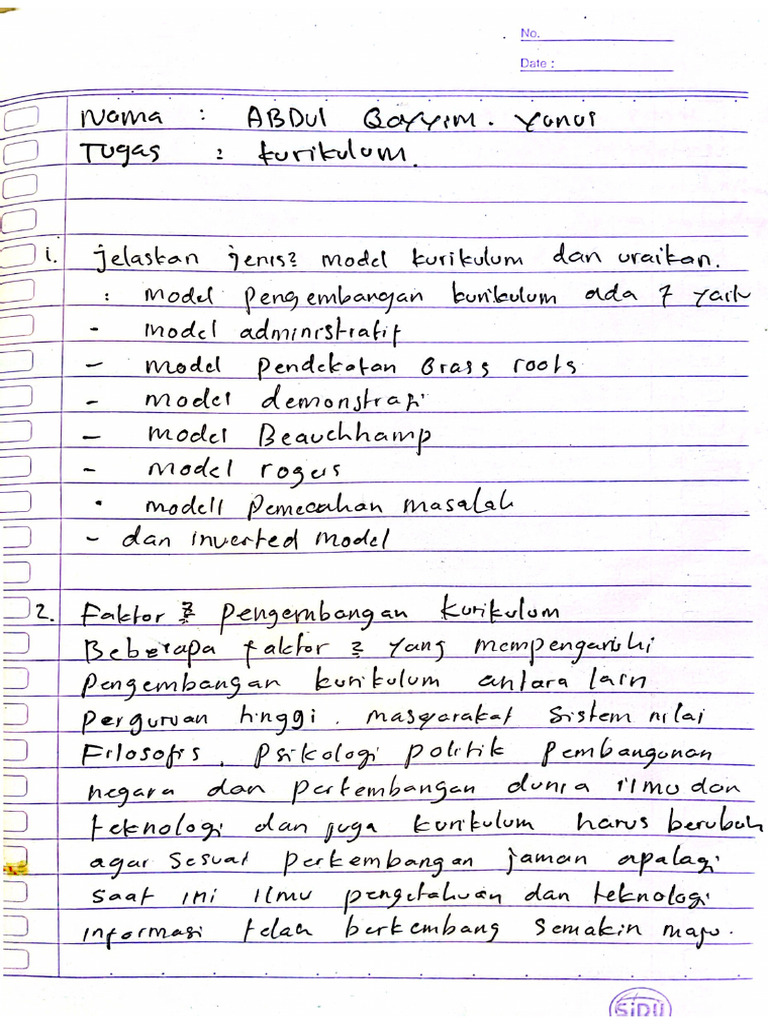 No.
Date :
Nama : ABDUL Qayyim. Yunus
Tugas : kurikulum.
1. jelaskan jenis2 model kurikulum dan uraikan.
: model pengembangan kurikulum ada 7 yaitu
- model administratif
- model pendekatan Grass roots
- model demonstrasi
- model Beauchhamp
- model rogers
• modell pemecahan masalah
- dan inverted model
2. Faktor 2 pengembangan kurikulum
Beberapa faktor 2 yang mempengaruhi
pengembangan kurikulum antara lain
perguruan tinggi. masyarakat sistem nilai
Filosofis. psikologi politik pembangunan
negara dan perkembangan dunia ilmu dan
teknologi dan juga kurikulum harus berubah
agar sesuai perkembangan jaman apalagi
saat ini ilmu pengetahuan dan teknologi
informasi telah berkembang semakin maju.
SiDU